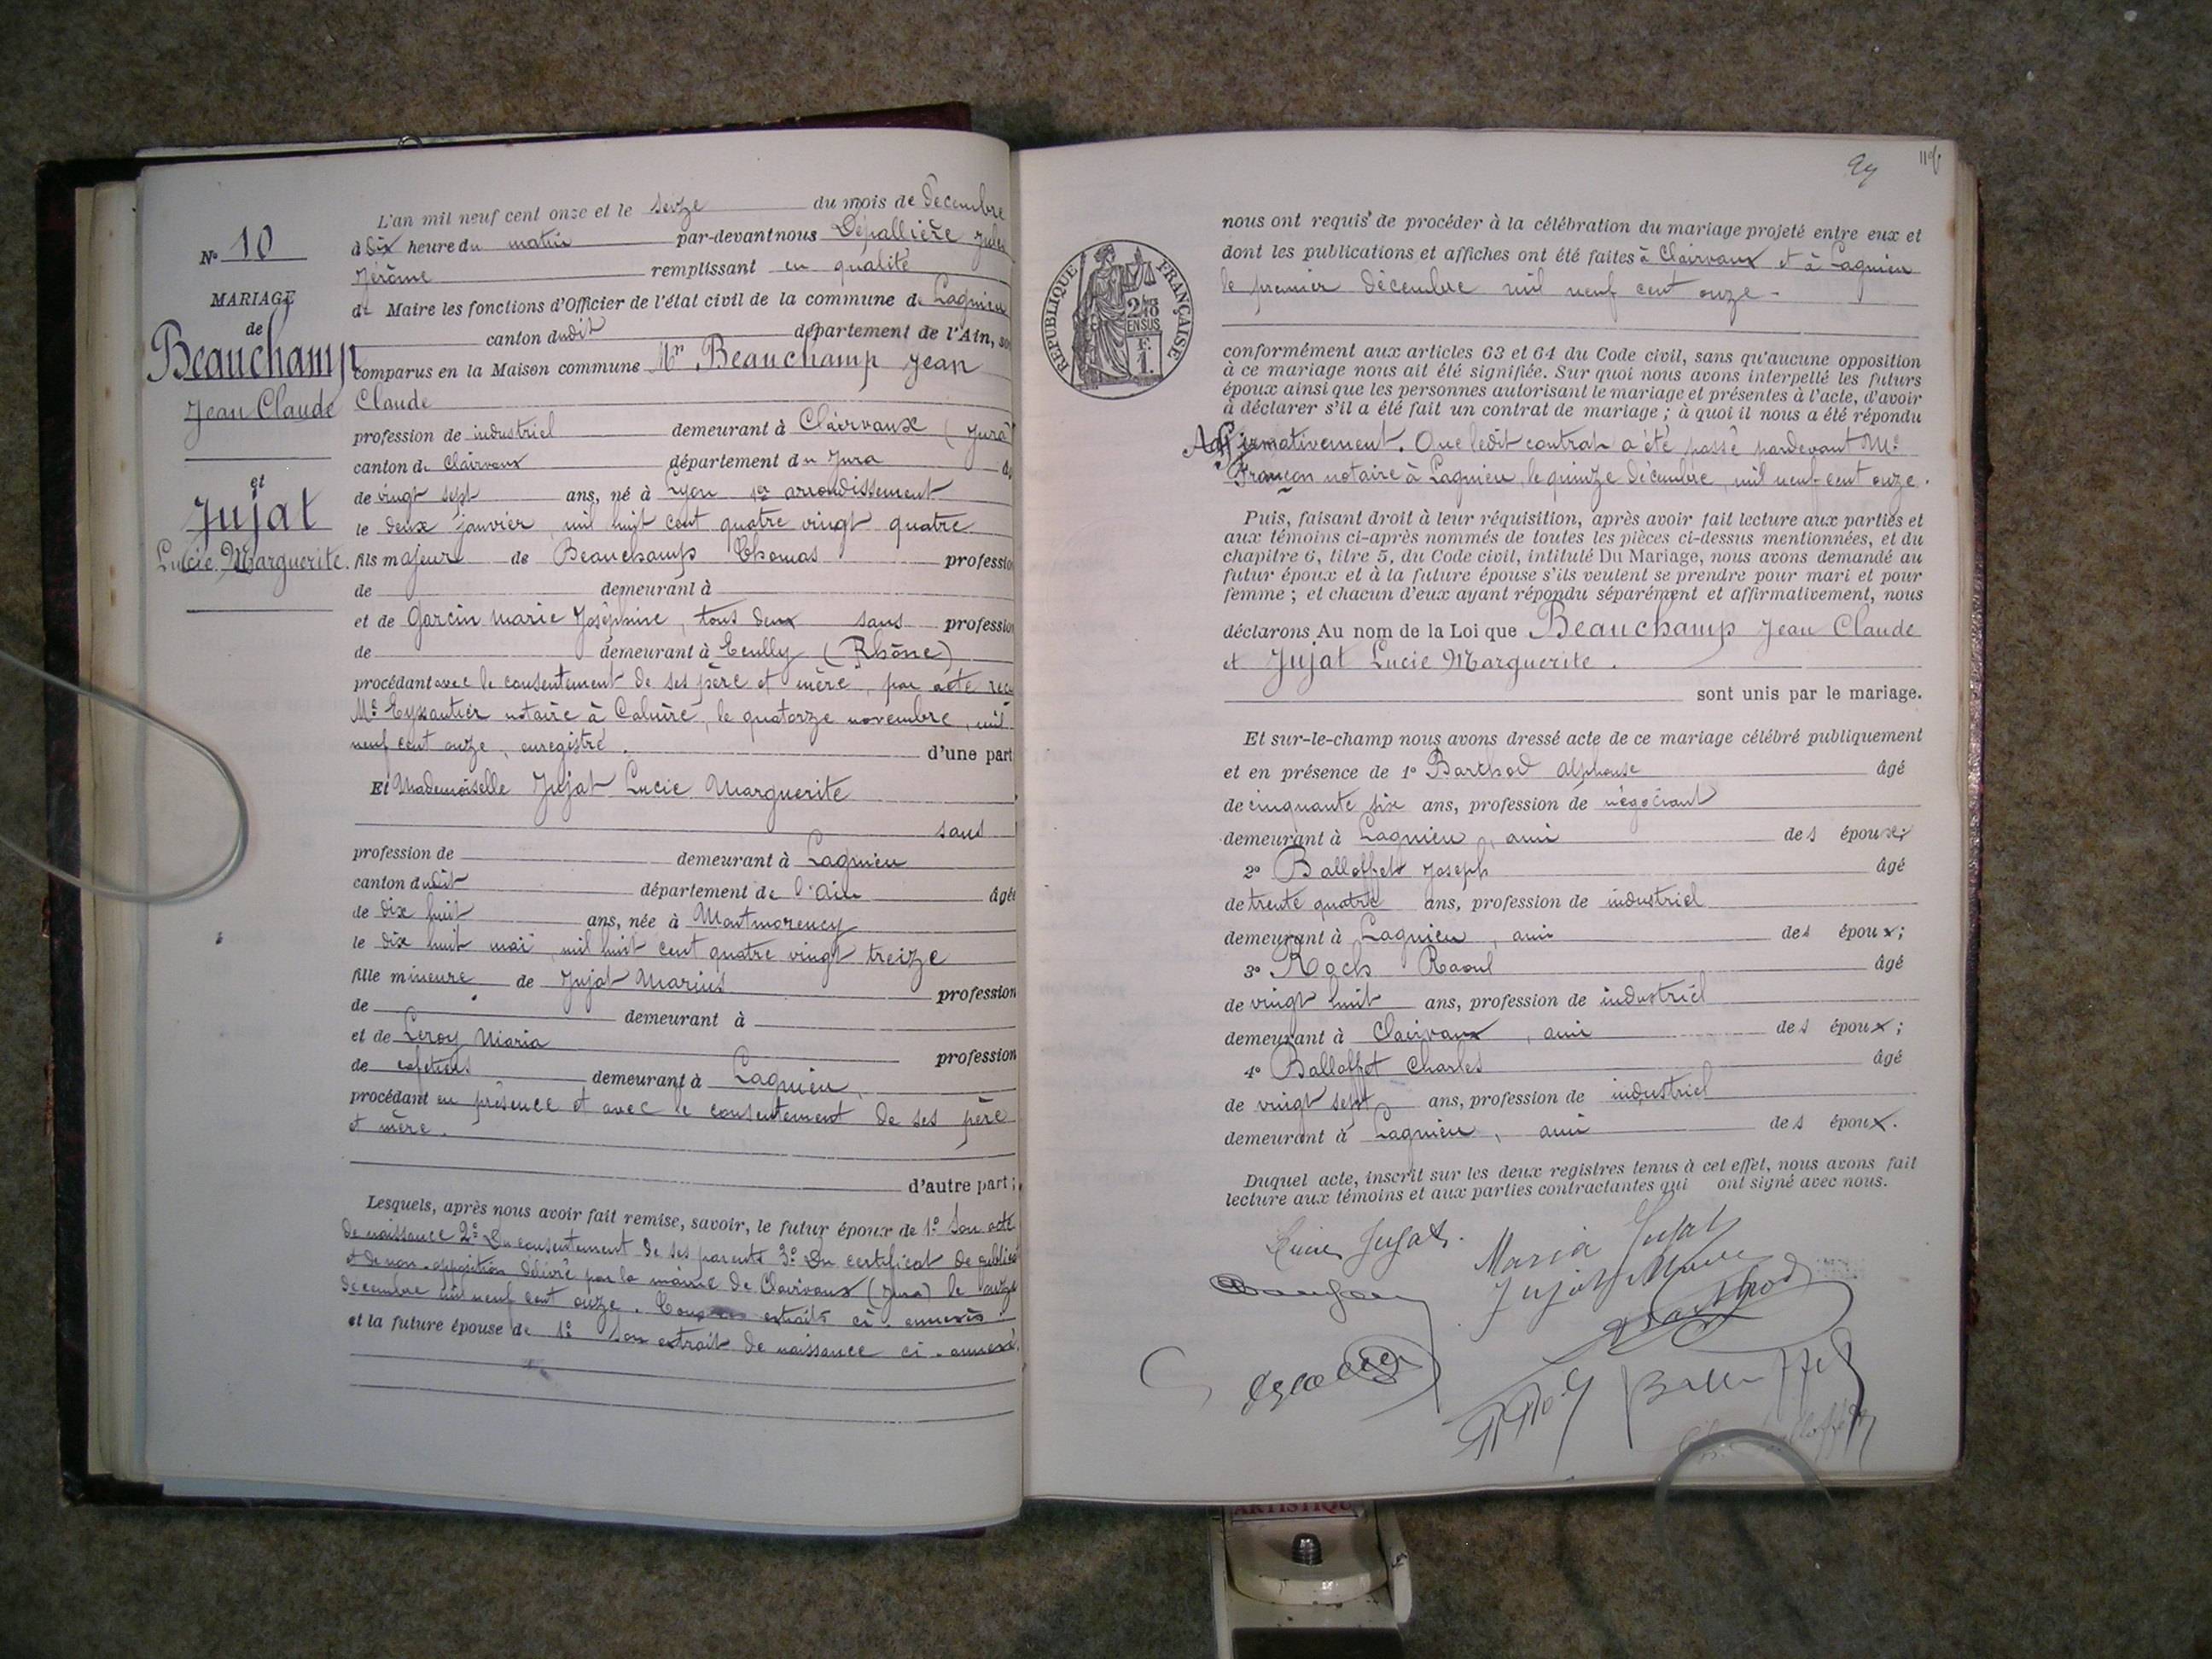 N° 10
MARIAGE
de
Beauchamp
Jean Claude
et
Jujat
Lucie Marguerite.
L'an mil neuf cent onze et le seize du mois de Décembre
à dix heure du matin par-devant nous Dépallière Jules
Jérôme remplissant en qualité
de Maire les fonctions d'Officier de l'état civil de la commune de Lagnieu
canton dudit département de l'Ain, so
comparus en la Maison commune Mr Beauchamp Jean
Claude
profession de industriel demeurant à Clairvaux (Jura)
canton de Clairvaux département du Jura
de vingt sept ans, né à Lyon 1er arrondissement
le deux janvier mil huit cent quatre vingt quatre
fils majeur de Beauchamp Thomas professio
de demeurant à
et de Garcin Marie Joséphine, tous deux sans professio
de demeurant à Ecully (Rhône)
procédant avec le consentement de ses père et mère, par acte reçu
Me Eyssautier notaire à Caluire, le quatorze novembre, mil
neuf cent onze, enregistré. d'une part
Et Mademoiselle Jujat Lucie Marguerite
sans
profession de demeurant à Lagnieu
canton dudit département de l'Ain âgée
de dix huit ans, née à Montmorency
le dix huit mai mil huit cent quatre vingt treize
fille mineure de Jujat Marius profession
de demeurant à
et de Leroy Maria profession
de cafetiers demeurant à Lagnieu,
procédant en présence et avec le consentement de ses père
et mère.
d'autre part ;
Lesquels, après nous avoir fait remise, savoir, le futur époux de 1° Son acte
de naissance 2° Du consentement de ses parents 3° Du certificat de public
et de non-opposition délivré par la mairie de Clairvaux (Jura) le onze
décembre mil neuf cent onze. extraits ci-annexés.
et la future épouse de 1° Son extrait de naissance ci-annexé.
RÉPUBLIQUE FRANÇAISE
2/10
EN SUS
F.
1.
nous ont requis de procéder à la célébration du mariage projeté entre eux et
dont les publications et affiches ont été faites à Clairvaux et à Lagnieu
le premier décembre mil neuf cent onze -
conformément aux articles 63 et 64 du Code civil, sans qu'aucune opposition
à ce mariage nous ait été signifiée. Sur quoi nous avons interpellé les futurs
époux ainsi que les personnes autorisant le mariage et présentes à l'acte, d'avoir
à déclarer s'il a été fait un contrat de mariage ; à quoi il nous a été répondu
Affirmativement. Que ledit contrat a été passé pardevant Me
Françon notaire à Lagnieu, le quinze décembre, mil neuf cent onze.
Puis, faisant droit à leur réquisition, après avoir fait lecture aux parties et
aux témoins ci-après nommés de toutes les pièces ci-dessus mentionnées, et du
chapitre 6, titre 5, du Code civil, intitulé Du Mariage, nous avons demandé au
futur époux et à la future épouse s'ils veulent se prendre pour mari et pour
femme ; et chacun d'eux ayant répondu séparément et affirmativement, nous
déclarons Au nom de la Loi que Beauchamp Jean Claude
et Jujat Lucie Marguerite.
sont unis par le mariage.
Et sur-le-champ nous avons dressé acte de ce mariage célébré publiquement
et en présence de 1° Barthod Alphonse âgé
de cinquante six ans, profession de négociant
demeurant à Lagnieu, ami des époux;
2° Balloffet Joseph âgé
de trente quatre ans, profession de industriel
demeurant à Lagnieu, ami des époux;
3° Roch Raoul âgé
de vingt huit ans, profession de industriel
demeurant à Clairvaux, ami des époux;
4° Balloffet Charles âgé
de vingt sept ans, profession de industriel
demeurant à Lagnieu, ami des époux.
Duquel acte, inscrit sur les deux registres tenus à cet effet, nous avons fait
lecture aux témoins et aux parties contractantes qui ont signé avec nous.
Lucie Jujat. Maria Jujat
Jujat
Barthod
Balloffet
Balloffet
ARTISTIQU